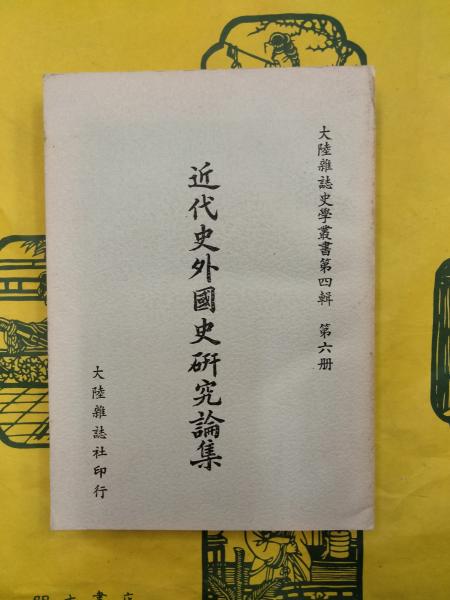 大陸雜誌史學叢書第四輯 第六册
近代史外國史研究論集
大陸雜誌社印行